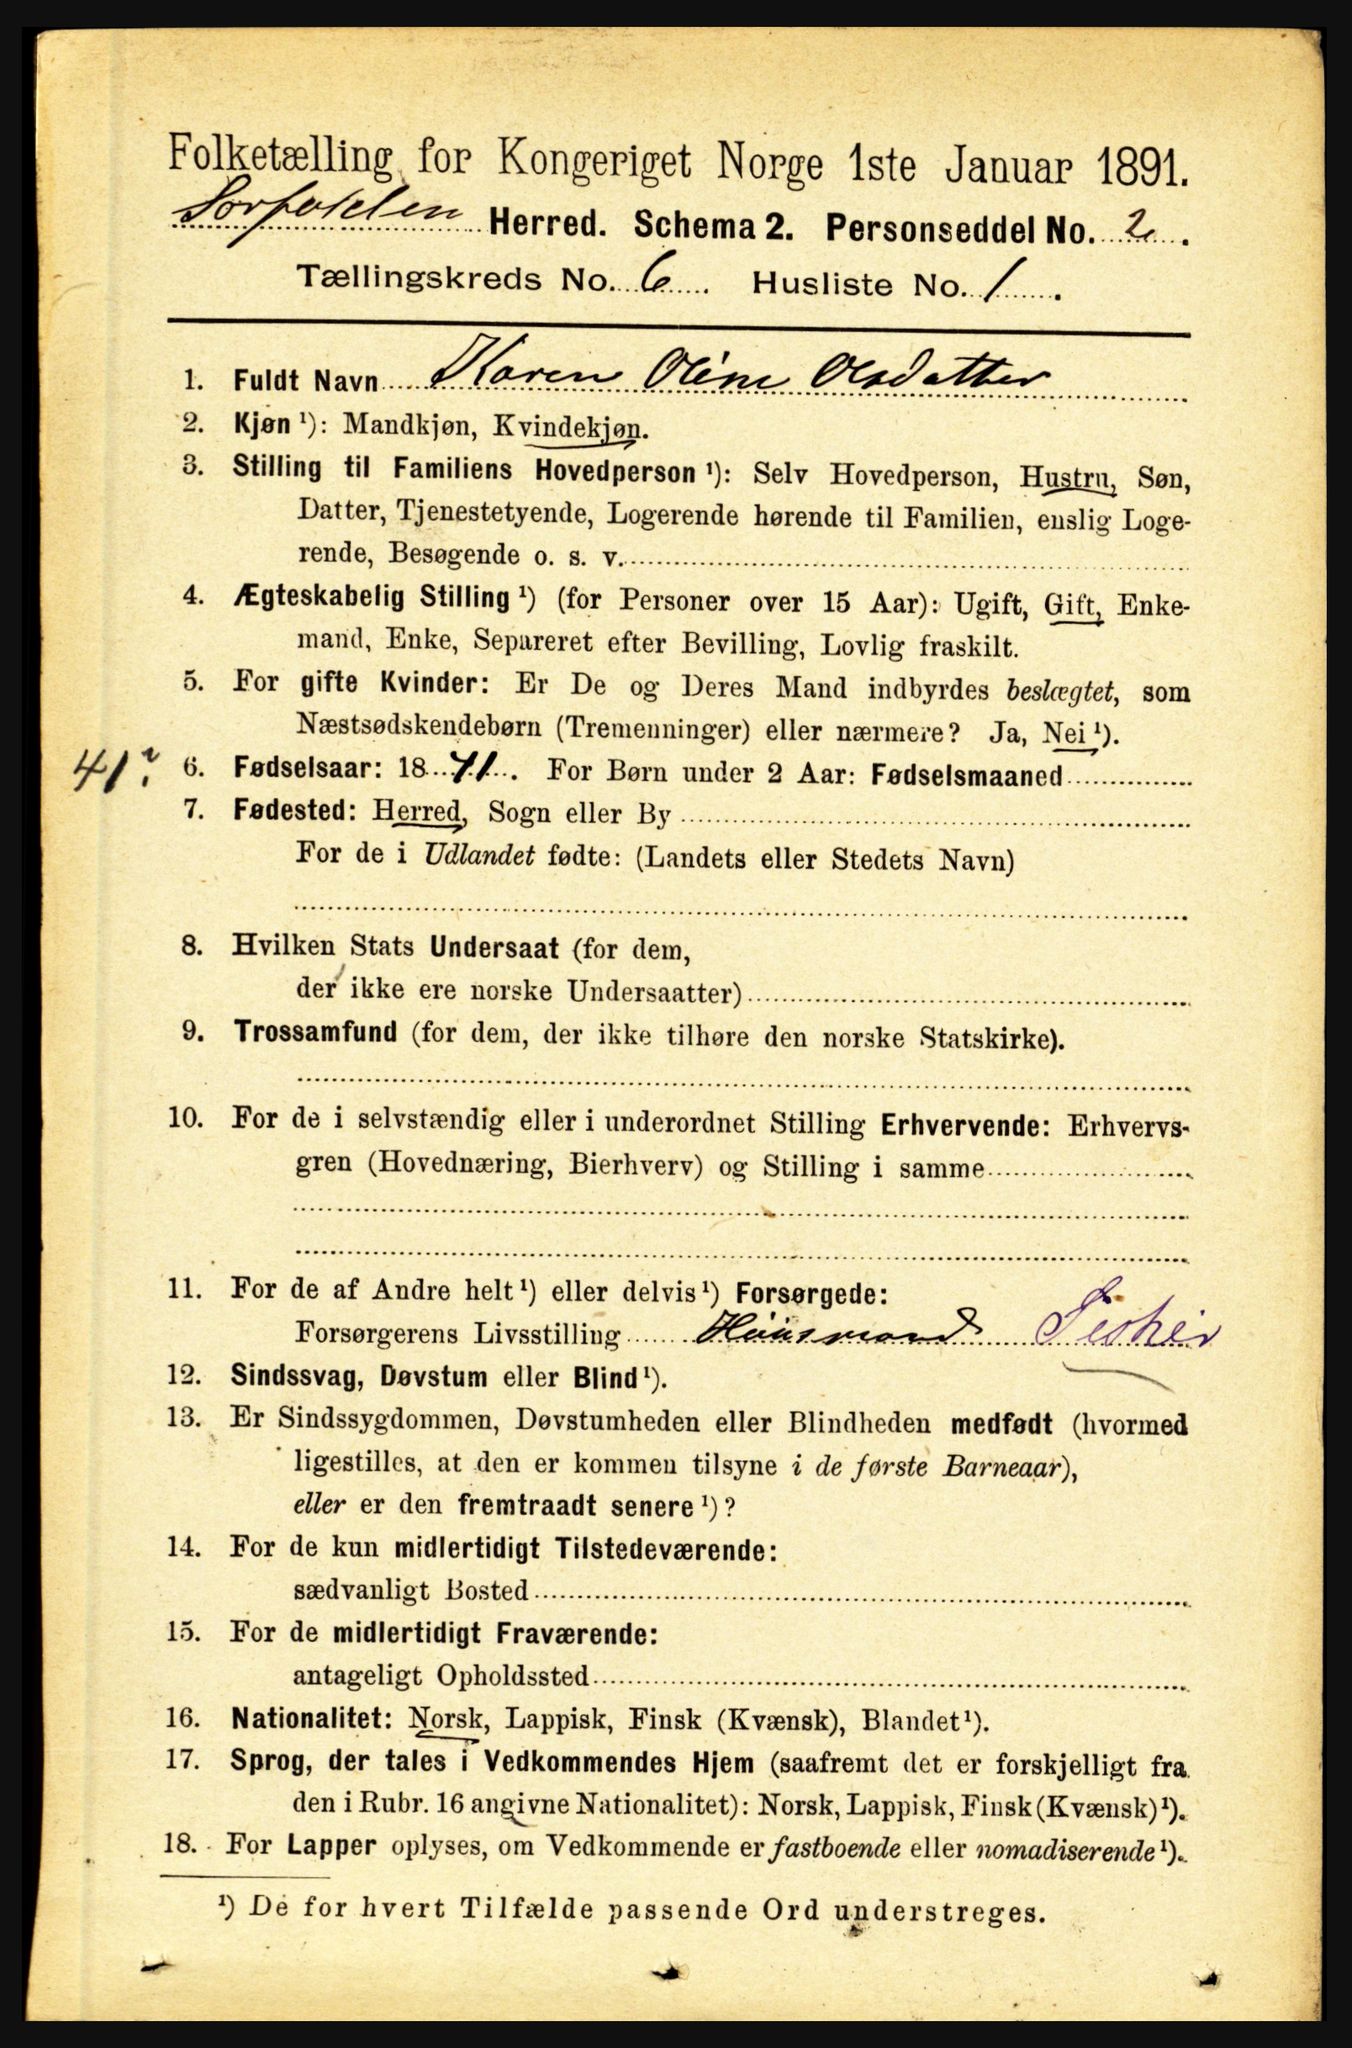 Folketælling for Kongeriget Norge 1ste Januar 1891.
Sørfolden Herred. Schema 2. Personseddel No. 2.
Tællingskreds No. 6. Husliste No. 1.
1. Fuldt Navn Karen Oline Olsdatter
2. Kjøn ¹): Mandkjøn, Kvindekjøn.
3. Stilling til Familiens Hovedperson ¹): Selv Hovedperson, Hustru, Søn,
Datter, Tjenestetyende, Logerende hørende til Familien, enslig Loge-
rende, Besøgende o. s. v.
4. Ægteskabelig Stilling ¹) (for Personer over 15 Aar): Ugift, Gift, Enke-
mand, Enke, Separeret efter Bevilling, Lovlig fraskilt.
5. For gifte Kvinder: Er De og Deres Mand indbyrdes beslægtet, som
Næstsødskendebørn (Tremenninger) eller nærmere? Ja, Nei ¹).
41? 6. Fødselsaar: 1841. For Børn under 2 Aar: Fødselsmaaned
7. Fødested: Herred, Sogn eller By
For de i Udlandet fødte: (Landets eller Stedets Navn)
8. Hvilken Stats Undersaat (for dem,
der ikke ere norske Undersaatter)
9. Trossamfund (for dem, der ikke tilhøre den norske Statskirke).
10. For de i selvstændig eller i underordnet Stilling Erhvervende: Erhvervs-
gren (Hovednæring, Bierhverv) og Stilling i samme
11. For de af Andre helt ¹) eller delvis ¹) Forsørgede:
Forsørgerens Livsstilling Huusmand Fisker
12. Sindssvag, Døvstum eller Blind ¹).
13. Er Sindssygdommen, Døvstumheden eller Blindheden medfødt (hvormed
ligestilles, at den er kommen tilsyne i de første Barneaar),
eller er den fremtraadt senere ¹)?
14. For de kun midlertidigt Tilstedeværende:
sædvanligt Bosted
15. For de midlertidigt Fraværende:
antageligt Opholdssted
16. Nationalitet: Norsk, Lappisk, Finsk (Kvænsk), Blandet ¹).
17. Sprog, der tales i Vedkommendes Hjem (saafremt det er forskjelligt fra
den i Rubr. 16 angivne Nationalitet): Norsk, Lappisk, Finsk (Kvænsk) ¹).
18. For Lapper oplyses, om Vedkommende er fastboende eller nomadiserende ¹).
¹) De for hvert Tilfælde passende Ord understreges.